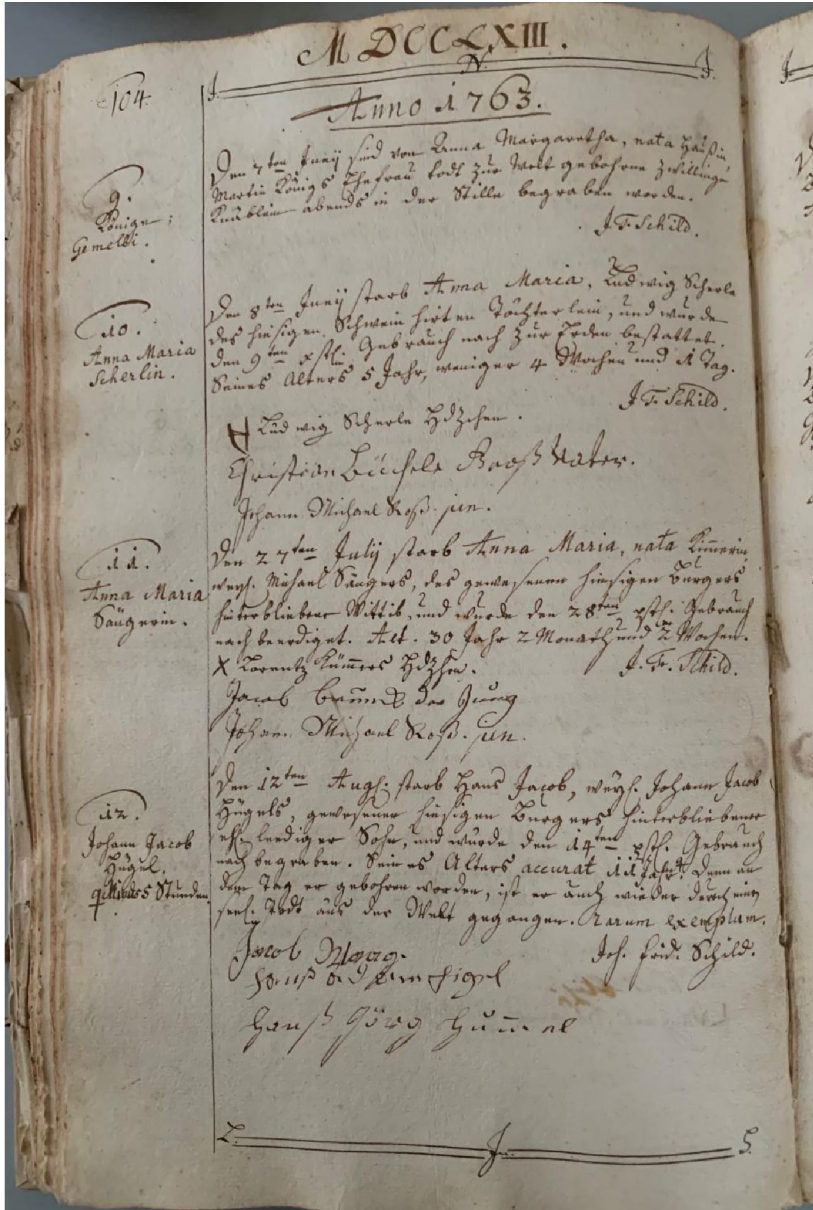 MDCCLXIII.
104.
J. N. J.
Anno 1763.
9.
König.
Gemelli.
Den 7ten Junij sind von Anna Margaretha, nata
Martin Königs Ehefrau todt zur Welt gebohrne Zwillinge
Knäblein abends in der Stille begraben worden.
J. F. Schild.
10.
Anna Maria
Scherlin.
Den 8ten Junij starb Anna Maria, Ludwig Scherle
des hiesigen Schwein hirten Töchterlein, und wurde
den 9ten xstln. Gebrauch nach zur Erden bestattet.
Seines Alters 5 Jahr, weniger 4 Wochen und 1 Tag.
J. F. Schild.
Ludwig Scherle Hdzchen.
Christian Büchele
Johann Michael Roß. jun.
11.
Anna Maria
Sängerin.
Den 27ten Julij starb Anna Maria, nata Kimerin,
weyl. Michael Sängers, des gewesenen hiesigen Burgers
hinterbliebene Wittib, und wurde den 28ten xstl. Gebrauch
nach beerdiget. Aet. 30 Jahr 2 Monath und 2 Wochen.
X Lorentz Kümers Hdzchn.
J. Fr. Schild.
Jacob der Jung
Johann Michael Roß. jun.
12.
Johann Jacob
Hügel.
5 Stunden.
Den 12ten Augl. starb Hans Jacob, weyl. Johann Jacob
Hügels, gewesener hiesigen Burgers hinterbliebener
ehl. lediger Sohn, und wurde den 14ten xstl. Gebrauch
nach begraben. Seines Alters accurat 11 Jahr. Denn an
dem Tag er gebohren worden, ist er auch wieder durch einen
seel. Todt aus der Welt gegangen. Rarum exemplum.
Joh. Frid. Schild.
Jacob
Hanß Jörg Hummel
L. J. S.